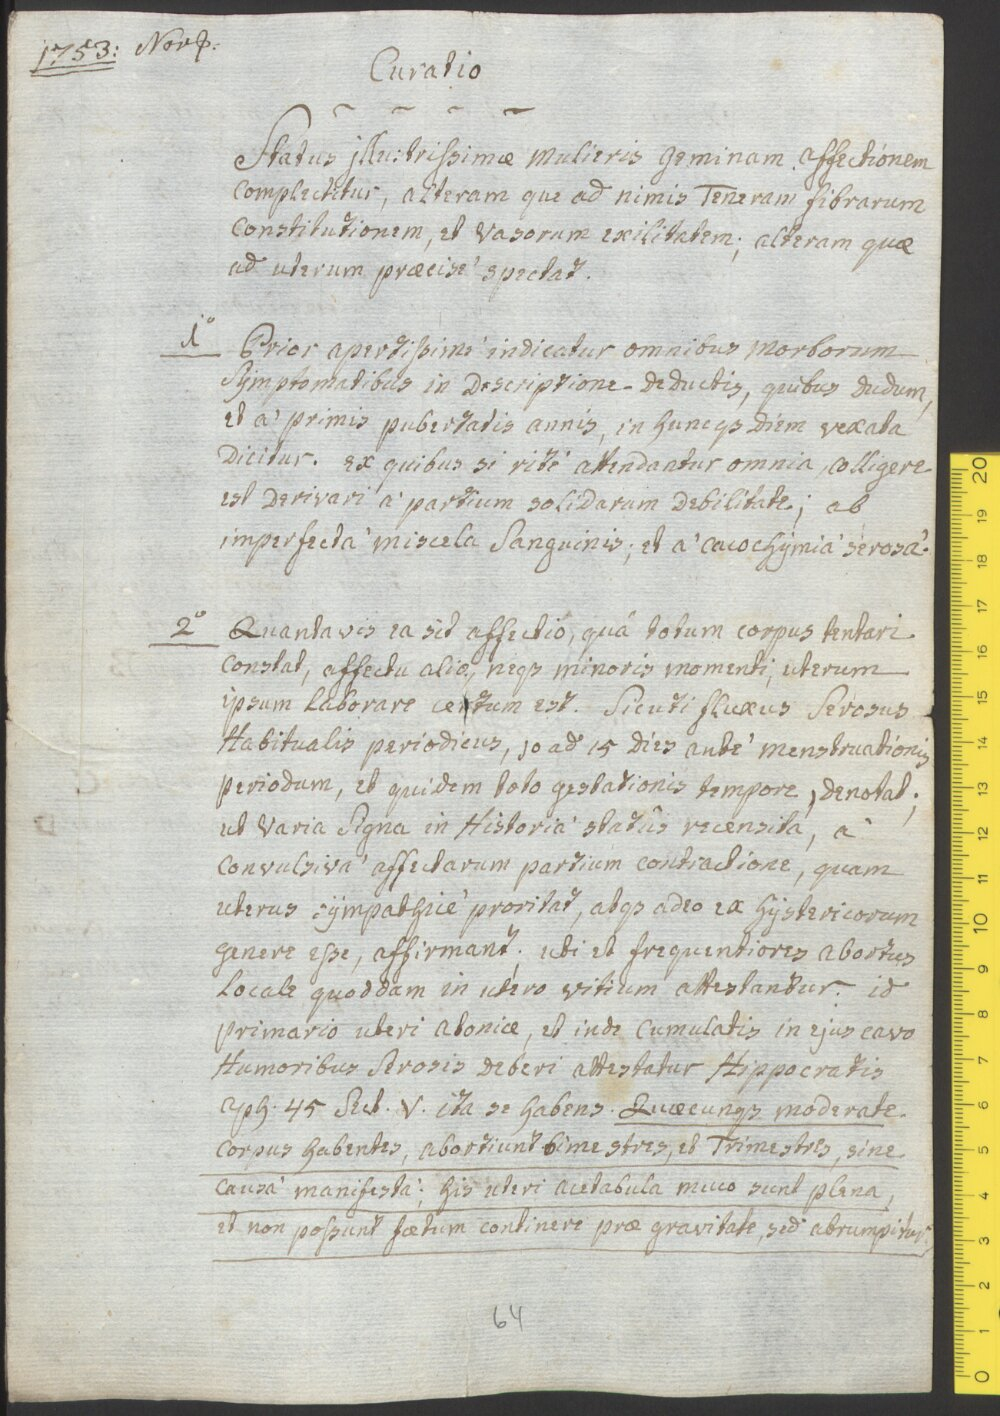 1753:
Curatio
Status jllustrissimæ Mulieris geminam affectionem
complectitur, alteram que ad nimis Teneram fibrarum
constitutionem, et vasorum exilitatem; alteram quæ
ad uterum præcisè spectat.
1º
Prior apertissimè indicatur omnibus Morborum
Symptomatibus in Descriptione deductis, quibus dudum,
et à primis pubertatis annis, in huncqs diem vexata
dicitur. Ex quibus si ritè attendantur omnia, colligere
est derivari à partium solidarum debilitate; ab
imperfectà miscela Sanguinis; et à cacochÿmià serosà.
2º
Quantavis ea sit affectio, quâ totum corpus tentari
constat, affectu alio, neqs minoris momenti, uterum
ipsum laborare certum est. Sicuti fluxus Serosus
Habitualis periodicus, 10 ad 15 dies antè menstruationis
periodum, et quidem toto gestationis tempore, denotat;
ut varia Signa in Historià statûs recensita, à
convulsivà affectarum partium contractione, quam
uterus sÿmpathicè proritat, atqs adeo ex hÿstericorum
genere esse, affirmant. uti et frequentiores abortus
Locale quoddam in utero vitium attestantur. id
primario uteri atoniæ, et inde cumulatis in ejus cavo
Humoribus Serosis deberi attestatur Hippocratis
aph. 45 Sect. V. ita se habens. Quæcunqs moderate
corpus habentes, abortiunt bimestres, et Trimestres, sine
causà manifestà; his uteri acetabula muco sunt plena,
et non possunt fœtum continere præ gravitate, sed abrumpitur.
64
20
19
18
17
16
15
14
13
12
11
10
9
8
7
6
5
4
3
2
1
0